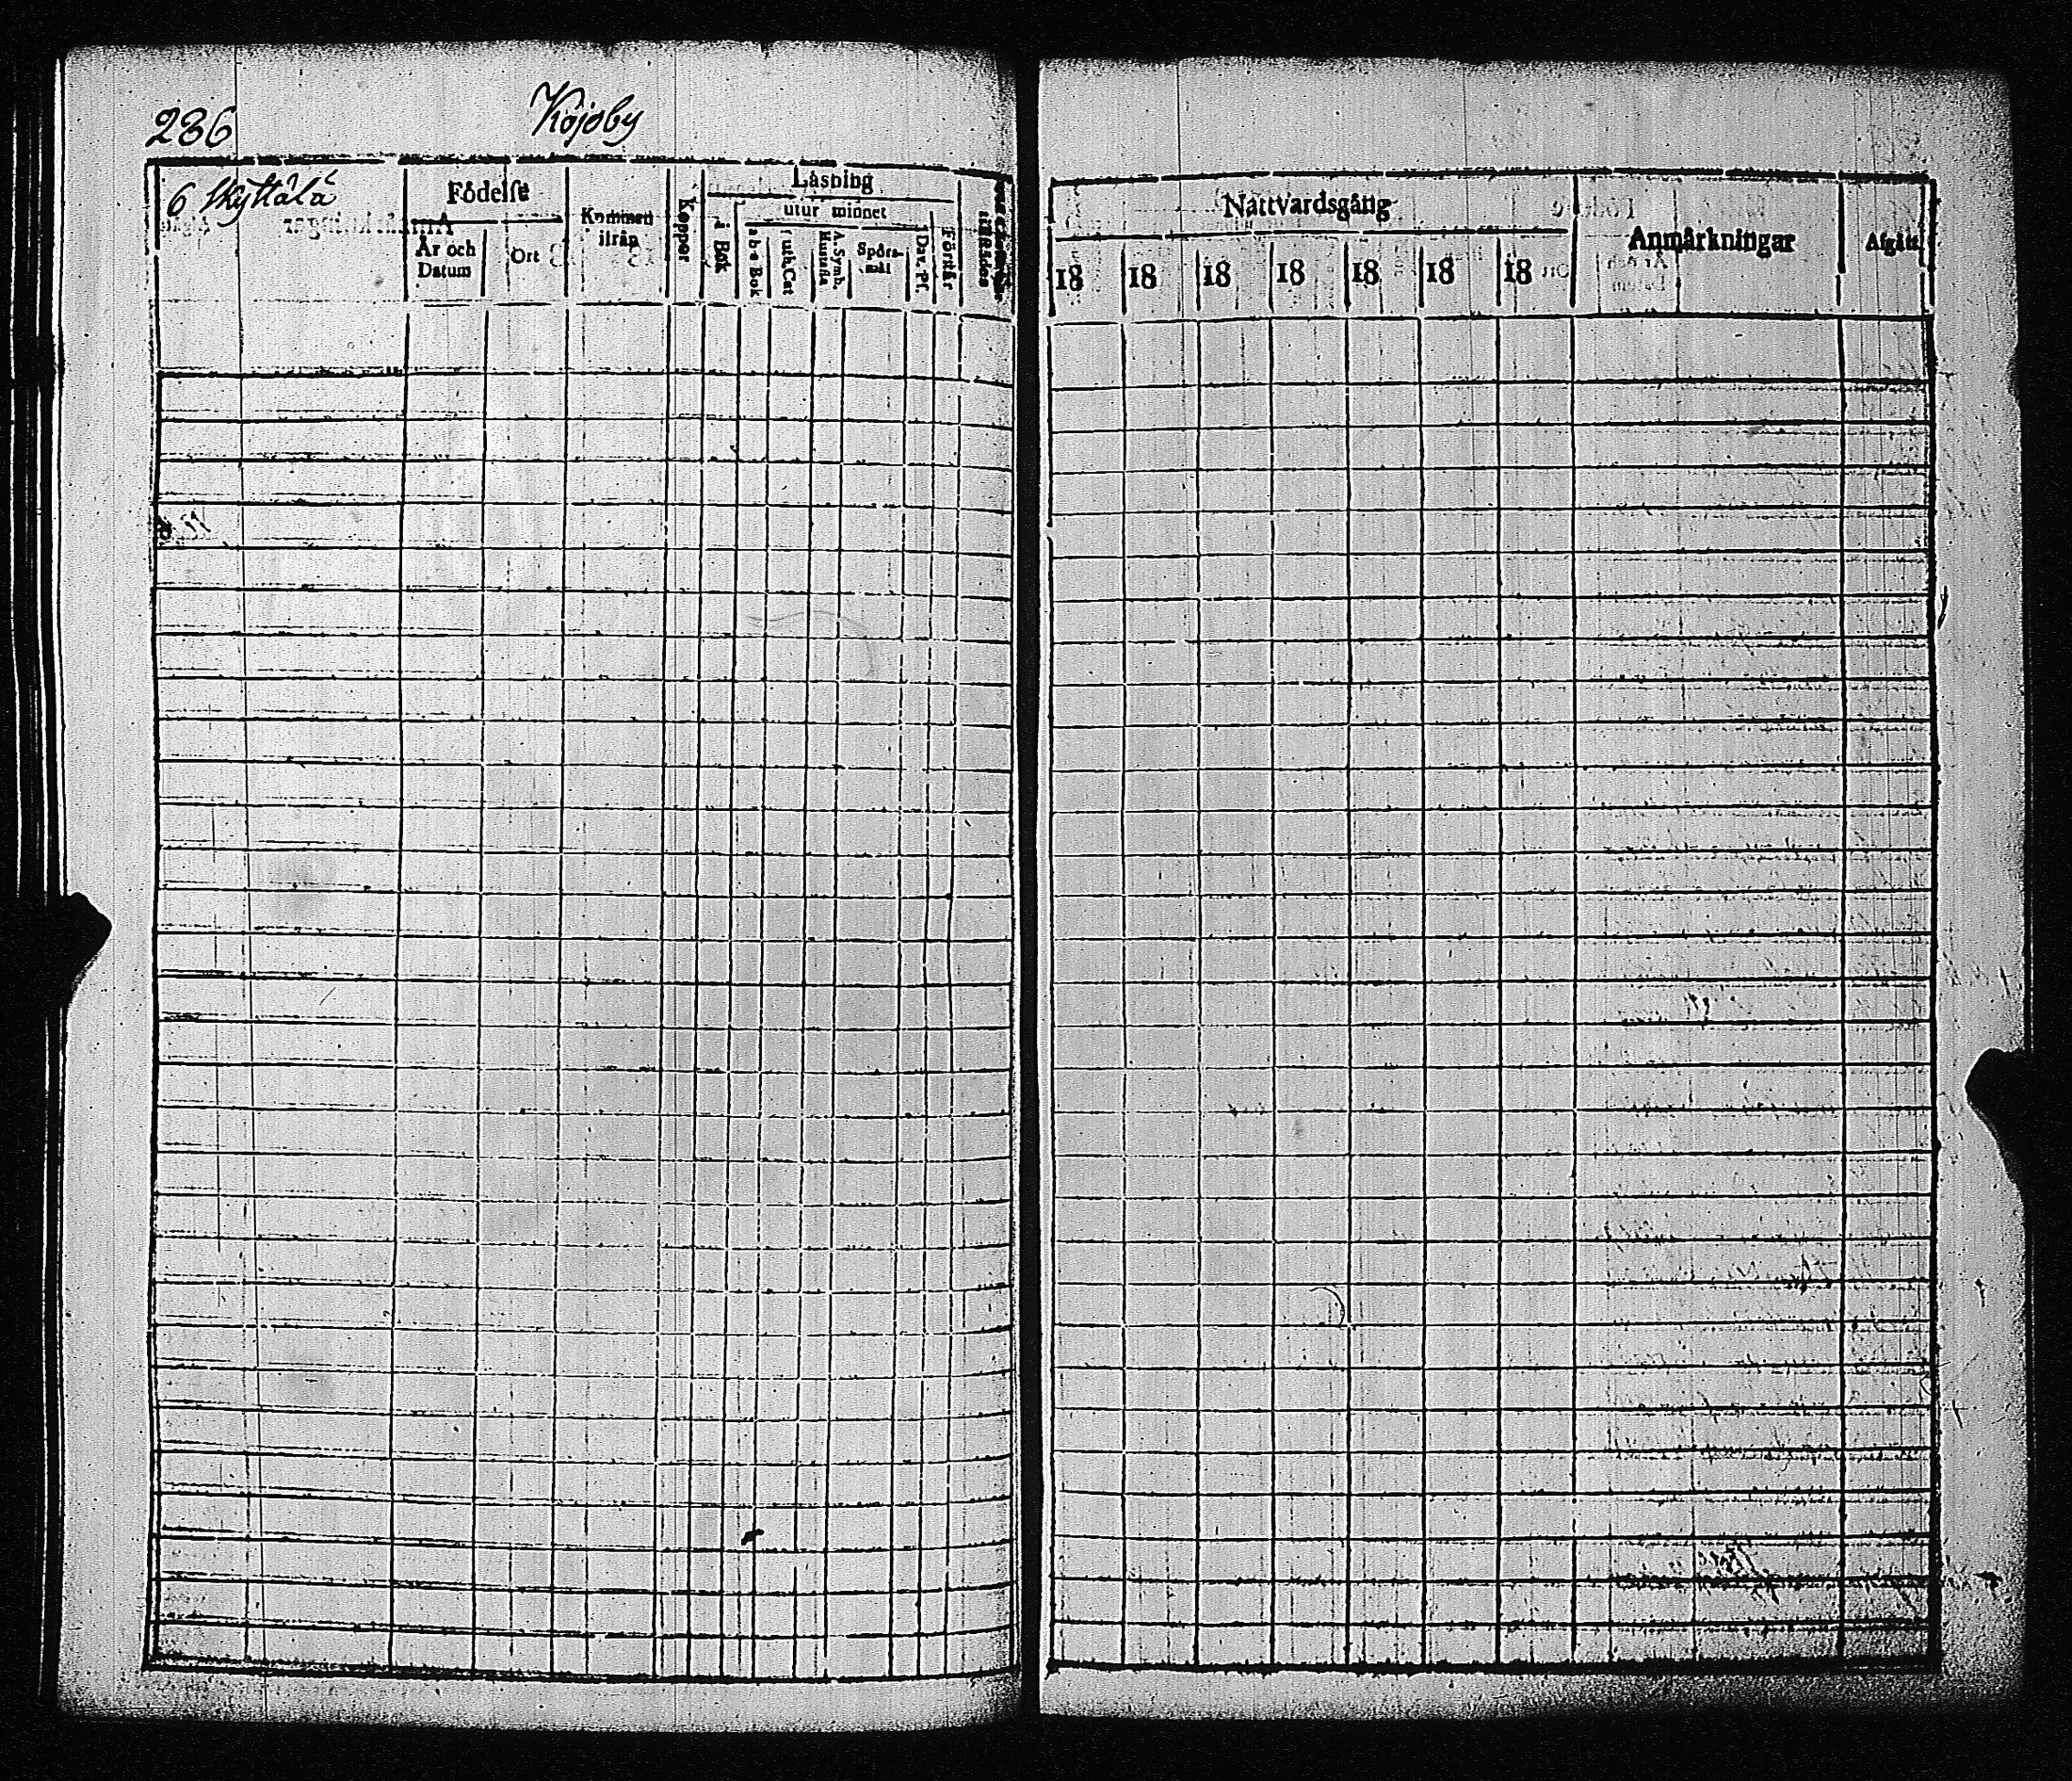 236
Köjoby
6 Skyttälä
Födelse
År och Datum
Ort
Kommen ifrån
Koppor
Läsning
i Bok
utur minnet
a b c Bok
Luth. Cat
A. Symb. Hustafla
Spörsmål
Dav. Ps.
Förstår
Nattvardsgång
18 18 18 18 18 18 18
Anmärkningar
Afgått